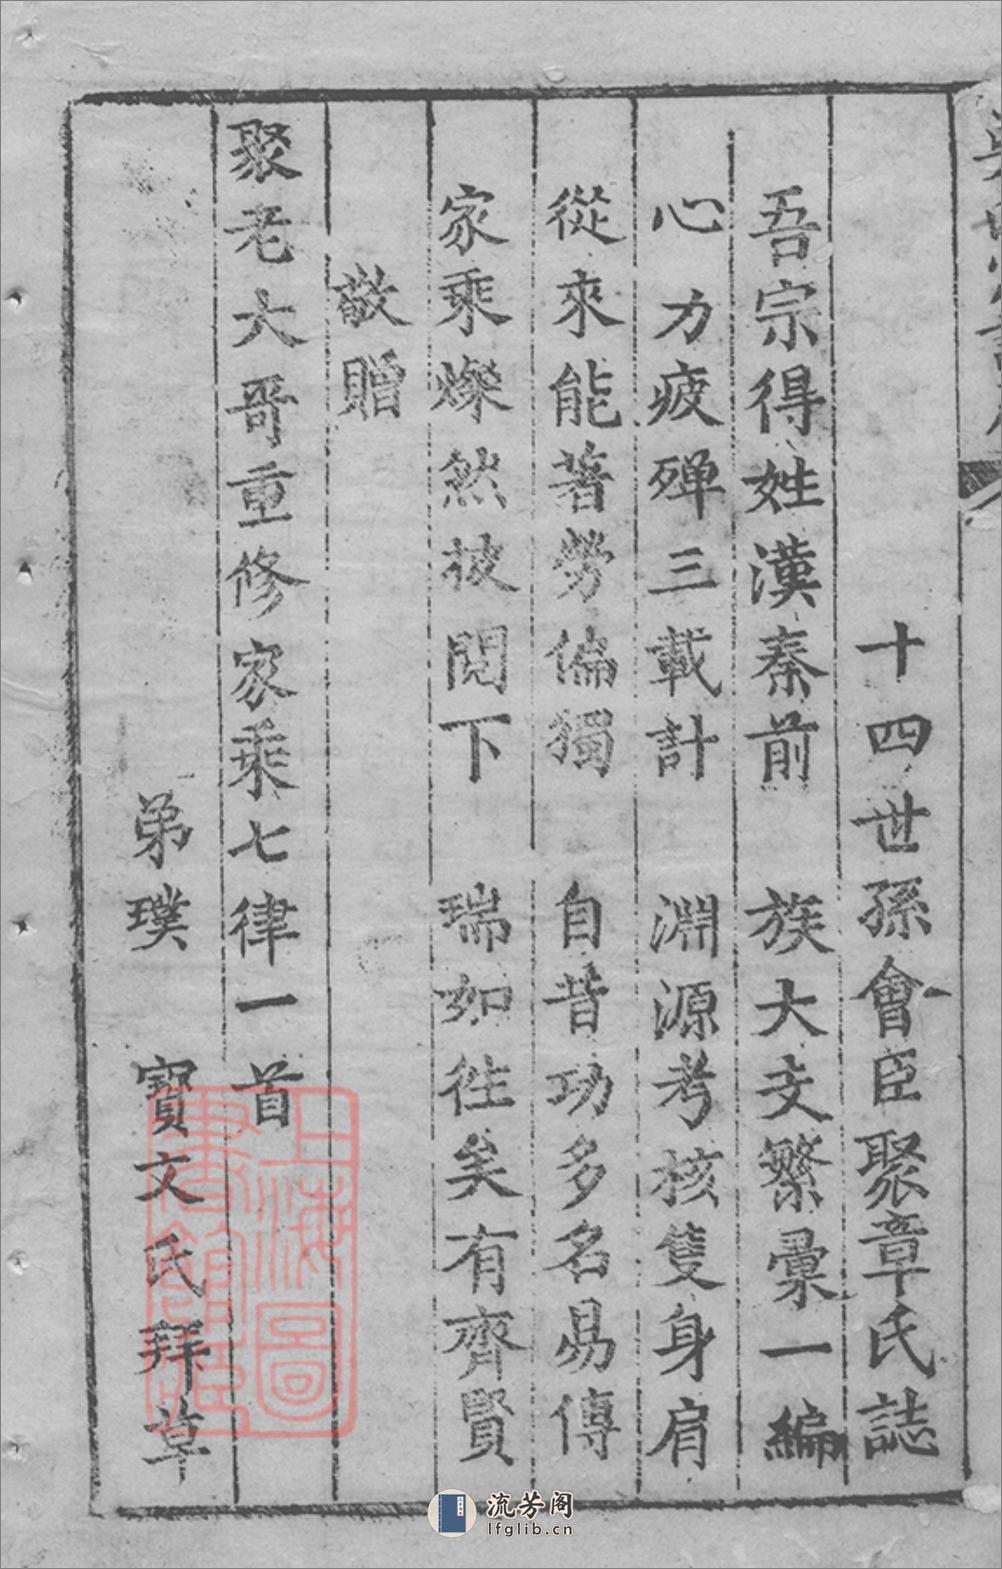 十四世孫會臣聚章氏誌
吾宗得姓漢秦前　族大文繁彙一編
心力疲殫三載計　淵源考核隻身肩
從來能著勞偏獨　自昔功多名易傳
家乘燦然披閱下　瑞如徃矣有齊賢
敬贈
聚老大哥重修家乘七律一首
弟璞　寶文氏拜草
上海圖書館藏
流芳阁
lfglib.cn